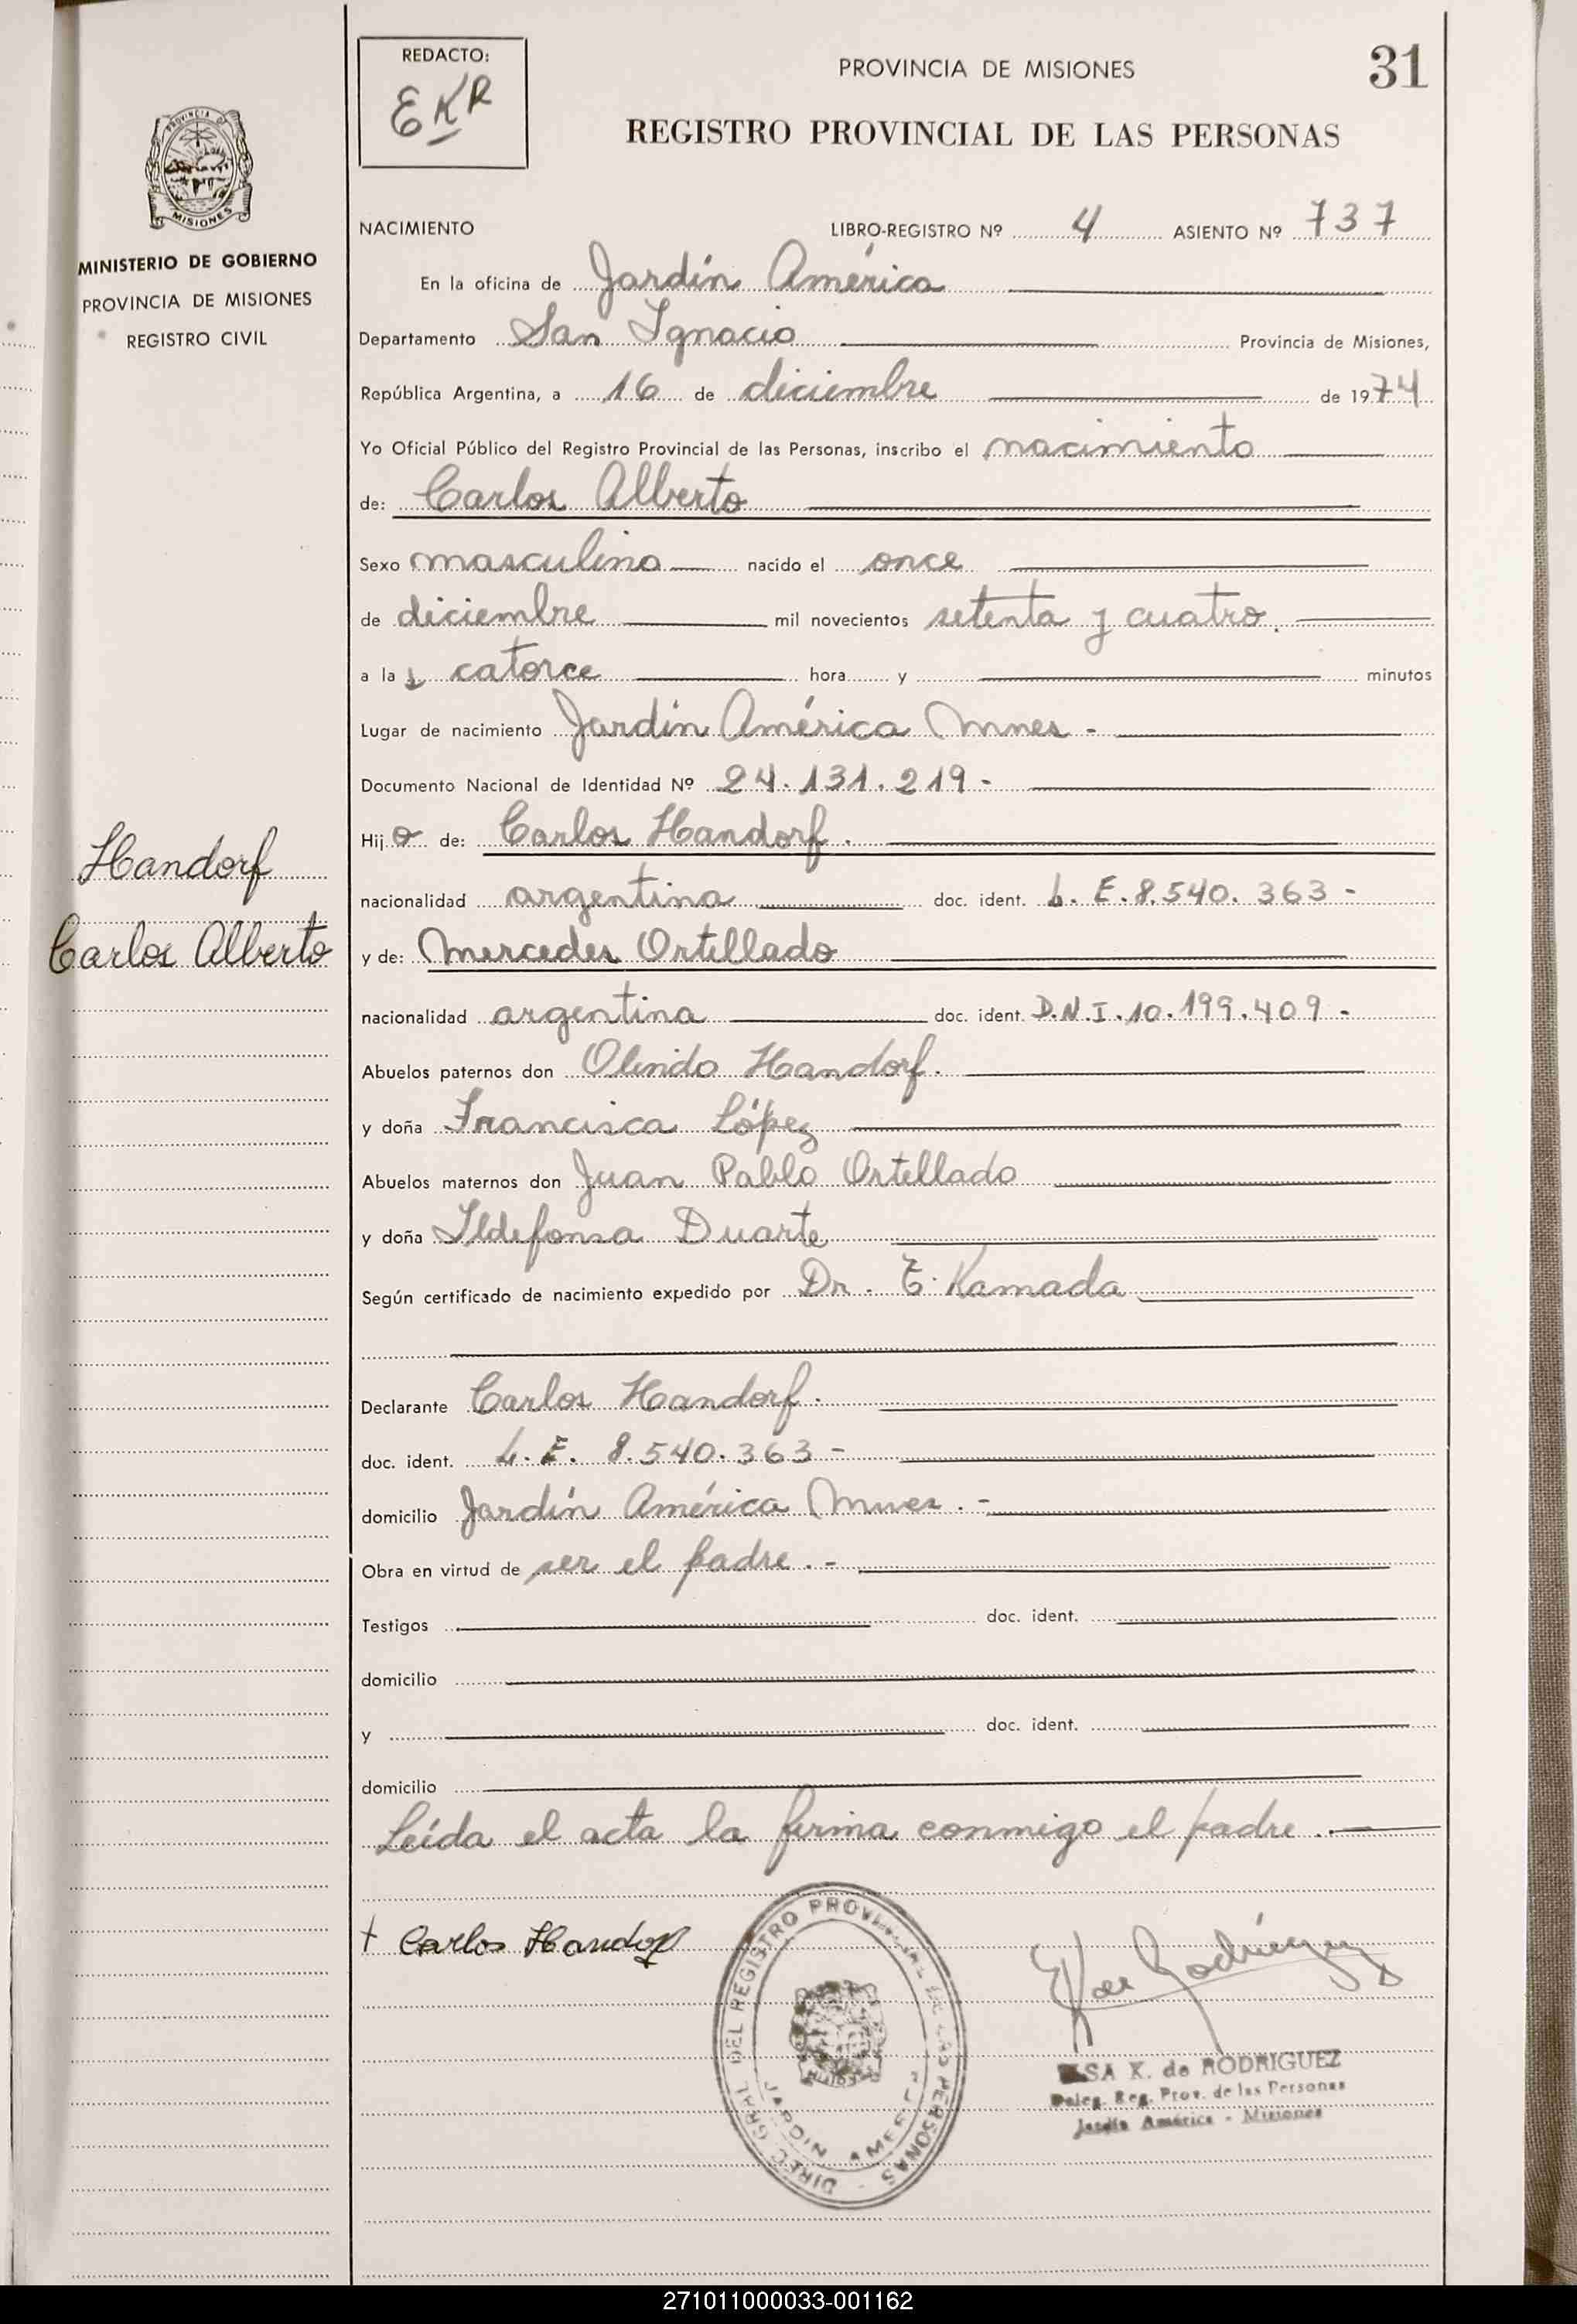 REDACTO:
EKR
PROVINCIA DE MISIONES
31
REGISTRO PROVINCIAL DE LAS PERSONAS
MISIONES
MINISTERIO DE GOBIERNO
PROVINCIA DE MISIONES
REGISTRO CIVIL
NACIMIENTO LIBRO-REGISTRO Nº 4 ASIENTO Nº 737
En la oficina de Jardín América
Departamento San Ignacio Provincia de Misiones,
República Argentina, a 16 de diciembre de 1974
Yo Oficial Público del Registro Provincial de las Personas, inscribo el nacimiento
de: Carlos Alberto
Sexo masculino nacido el once
de diciembre mil novecientos setenta y cuatro.
a las catorce hora y minutos
Lugar de nacimiento Jardín América Mnes -
Documento Nacional de Identidad Nº 24.131.219-
Hijo de: Carlos Handorf.
Handorf
nacionalidad argentina doc. ident. L.E.8.540.363-
Carlos Alberto
y de: Mercedes Ortellado
nacionalidad argentina doc. ident. D.N.I.10.199.409-
Abuelos paternos don Olindo Handorf.
y doña Francisca López
Abuelos maternos don Juan Pablo Ortellado
y doña Ildefonsa Duarte
Según certificado de nacimiento expedido por Dr. E. Kamada
Declarante Carlos Handorf.
doc. ident. L.E. 8.540.363-
domicilio Jardín América Mnes.-
Obra en virtud de ser el padre.-
Testigos doc. ident.
domicilio
y doc. ident.
domicilio
Leída el acta la firma conmigo el padre.
+ Carlos Handorf
DIREC. GRAL. DEL REGISTRO PROVINCIAL DE LAS PERSONAS -
JARDIN AMERICA
EK de Rodríguez
ELSA K. de RODRIGUEZ
Deleg. Reg. Prov. de las Personas
Jardín América - Misiones
271011000033-001162